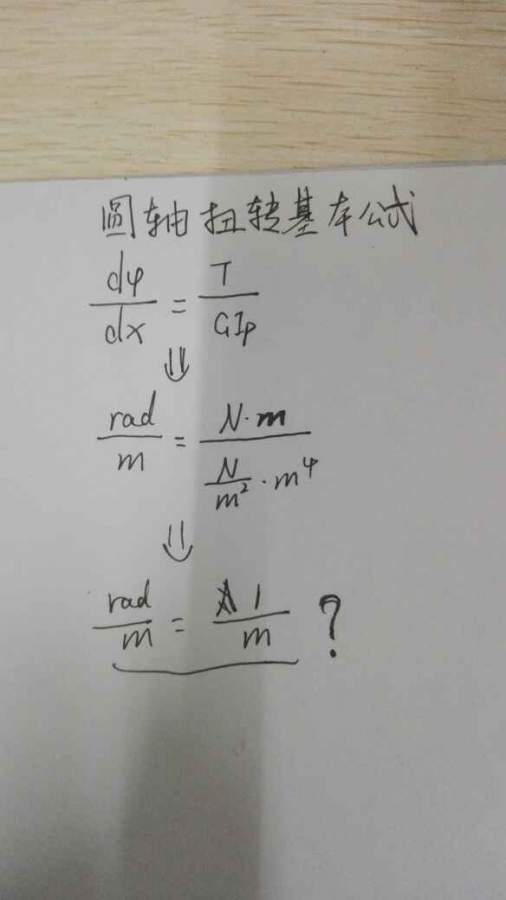 圆轴扭转基本公式
dφ/dx = T/GIp
⇓
rad/m = N·m/(N/m²·m⁴)
⇓
rad/m = 1/m ?